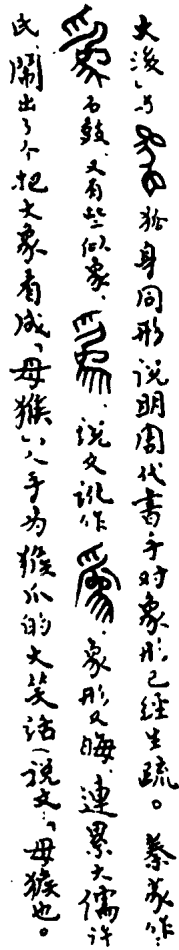 与身同形说明周代书手对象形已经生疏。秦篆作:
石鼓,又有些似象,,说文讹作,象形又晦,連累大儒许
氏,闹出了个把大象看成“母猴”,人手为猴爪的大笑话(说文:“母猴也。